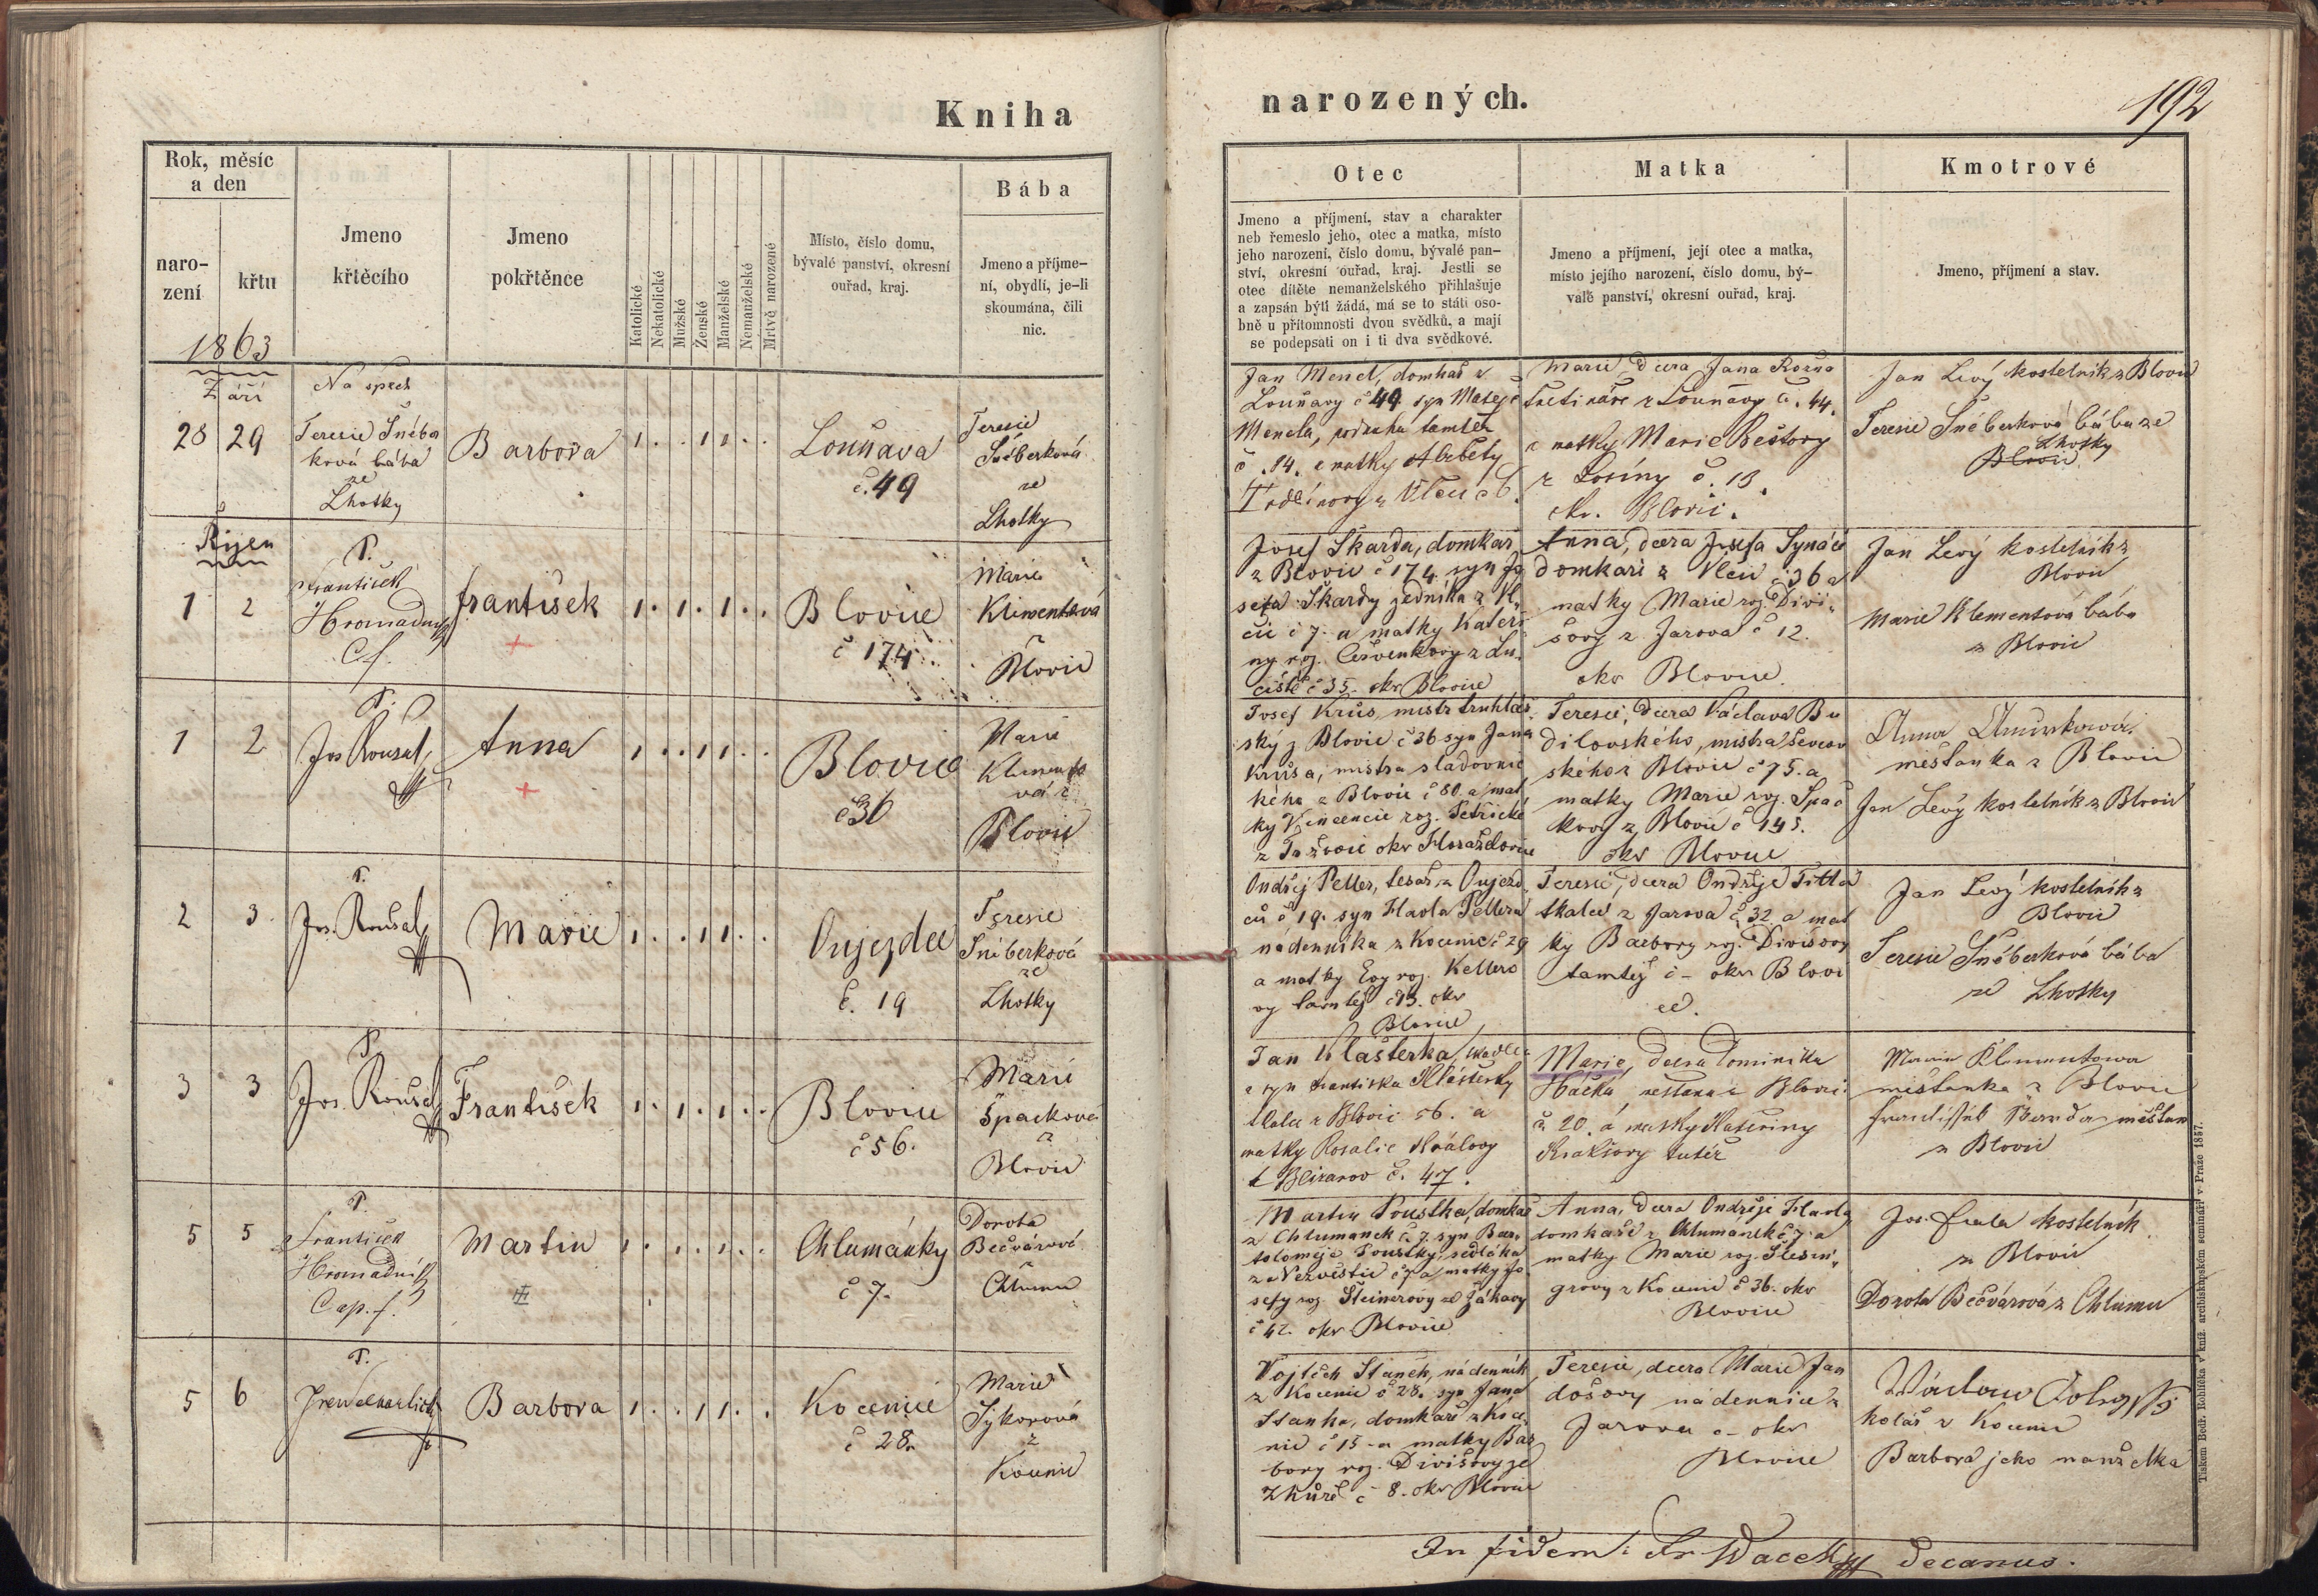 Kniha
narozených.
192
Rok, měsíc
a den
naro-
zení
křtu
Jmeno
křtěcího
Jmeno
pokřtěnce
Katolické
Nekatolické
Mužské
Ženské
Manželské
Nemanželské
Mrtvě narozené
Místo, číslo domu,
bývalé panství, okresní
ouřad, kraj.
Bába
Jmeno a příjme-
ní, obydlí, je-li
skoumána, čili
nic.
Otec
Jmeno a příjmení, stav a charakter
neb řemeslo jeho, otec a matka, místo
jeho narození, číslo domu, bývalé pan-
ství, okresní ouřad, kraj. Jestli se
otec dítěte nemanželského přihlašuje
a zapsán býti žádá, má se to státi oso-
bně u přítomnosti dvou svědků, a mají
se podepsati on i ti dva svědkové.
Matka
Jmeno a příjmení, její otec a matka,
místo jejího narození, číslo domu, bý-
valé panství, okresní ouřad, kraj.
Kmotrové
Jmeno, příjmení a stav.
1863
Září
28 29
Na spěch
Teresie Šnéber
ková bába
ze
Lhotky
Barbora
1 . . 1 1 . .
Louňava
č. 49
Teresie
Šnéberková
ze
Lhotky
Jan Menel, domkař z
Louňavy č 49 syn Matěje
Menela, tamtéž
č. 14. a matky Alžběty
z Vlčic č 6.
Marie, dcera Jana
z Louňavy č. 44.
a matky Marie
z Losiny č. 13.
okr. Blovic.
Jan Levý kostelník z Blovic
Teresie Šnéberková bába ze
Lhotky
Blovic
Říjen
1 2
P.
František
Hromadný
C. f.
František
1 . 1 . 1 . .
Blovice
č 174
Marie
Klimentová
z
Blovic
Josef Škarda, domkař
z Blovic č 174. syn Jo
sefa Škardy zedníka z Vl
čic č 7. a matky Kateři
ny roz. Červenkovy z Lu
čiště č 35. okr Blovice
Anna, dcera Josefa Synáče
domkáře z Vlčic č 36 a
matky Marie roz. Divi
šovy z Jarova č 12.
okr Blovice.
Jan Levý kostelník z
Blovic
Marie Klementová bába
z Blovic
1 2
P.
Jos Roušal
Anna
1 . . 1 1 . .
Blovice
č 36
Marie
Klimento
vá z
Blovic
Josef Krůs, mistr truhlář
ský z Blovic č 36 syn Jana
Krůsa, mistra sladovnic
kého z Blovic č 80. a mat
ky Vincencie roz.
z okr Horažďovice
Teresie, dcera Václava Bu
dilovského, mistra ševcov
ského z Blovic č 75. a
matky Marie roz. Špač
kovy z Blovic č 145.
okr Blovice
Anna
měšťanka z Blovic
Jan Levý kostelník z Blovic
2 3
P.
Jos. Roušal
Marie
1 . . 1 1 . .
Oujezdec
č. 19
Teresie
Šnéberková
ze
Lhotky
Ondřej Peller, tesař z Oujezd
ců č 19. syn Havla Pellera
nádenníka z Kocenic č 29
a matky Evy roz. Kellero
vy tamtéž č 13. okr
Blovice
Teresie, dcera Ondřeje Titla
tkalce z Jarova č 32 a mat
ky Barbory roz. Divišovy
tamtéž č - okr Blovi
ce.
Jan Levý kostelník z
Blovic
Teresie Šnéberková bába
ze Lhotky
3 3
P.
Jos. Roušal
František
1 . 1 . 1 . .
Blovice
č 56.
Marie
Špačková
z
Blovic
Jan Klášterka, tkadlec
a syn Františka Klášterky
tkalce z Blovic 56. a
matky Rosalie Královy
č. 47.
Marie, dcera Dominika
Háčka, měšťana z Blovic
č. 20. a matky Kateřiny
tutéž
Marie Klementowa
měšťanka z Blovic
měšťan
z Blovic
5 5
P.
František
Hromadný
Cap. f.
Martin
1 . 1 . 1 . .
Chlumánky
č 7.
Dorota
Bečvářová
z
Chlumu
Martin Poustka, domkař
z Chlumánek č. 7. syn Bar
toloměje Poustky, sedláka
z Nezvěstic č 7 a matky Jo
sefy roz. Steinerovy ze Žákavy
č 42. okr Blovice
Anna, dcera Ondřeje Havla
domkáře z Chlumánek č 7. a
matky Marie roz. Šlesin
grovy z Kocenic č 36. okr
Blovice
Jos. Fiala kostelník
z Blovic
Dorota Bečvářová z Chlumu
5 6
P.
Barbora
1 . . 1 1 . .
Kocenice
č 28.
Marie
Sykorová
z
Kocenic
Vojtěch Staněk, nádenník
z Kocenic č 28. syn Jana
Staňka, domkáře z Koce
nic č 15 a matky Bar
bory roz. Divišovy ze
Zhůře č 8. okr Blovice
Teresie, dcera Marie Jan
došovy nádennice z
Jarova č - okr
Blovice
Václav
kolář z Kocenic
Barbora jeho manželka
In fidem: Fr. Wacek decanus.
Tiskem Bedř. Rohlíčka v kníž. arcibiskupském semináři v Praze 1857.